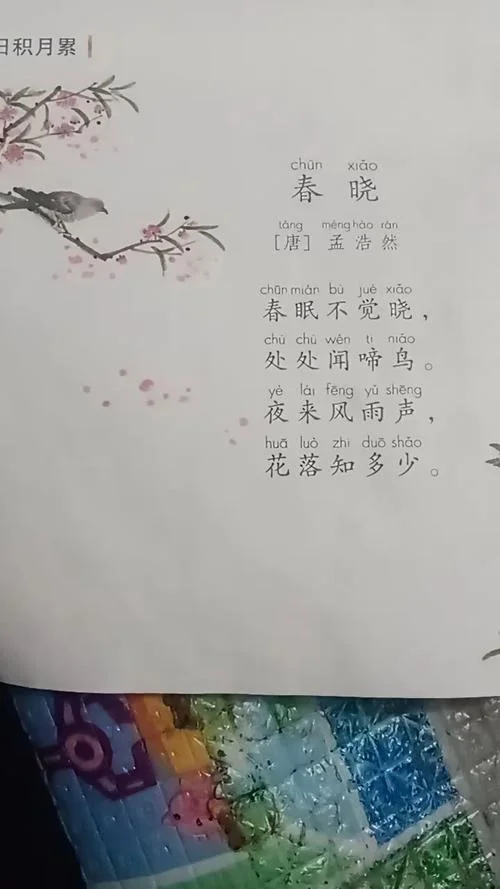 日积月累
chūn xiǎo
春晓
táng mèng hào rán
[唐] 孟浩然
chūn mián bù jué xiǎo
春眠不觉晓，
chù chù wén tí niǎo
处处闻啼鸟。
yè lái fēng yǔ shēng
夜来风雨声，
huā luò zhī duō shǎo
花落知多少。